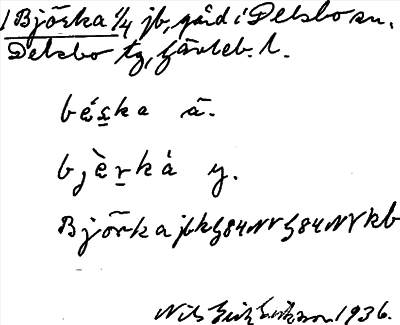 1 Björka 1/4 jb, gård i Delsbo sn.
Delsbo tg, Gävleb. l.
bé̱s̱ka ä.
bjè̱ṟká y.
Björka jbkG84NV G84NV kb
Nils Erik Eriksson 1936.